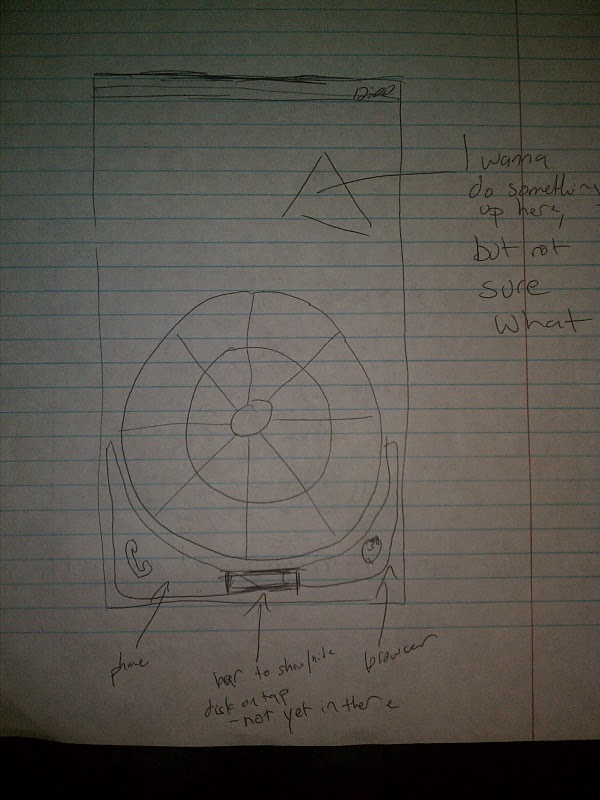 12:00
I wanna
do something
up here,
but not
sure
what
phone
bar to show/hide
disk on tap
- not yet in there
browser